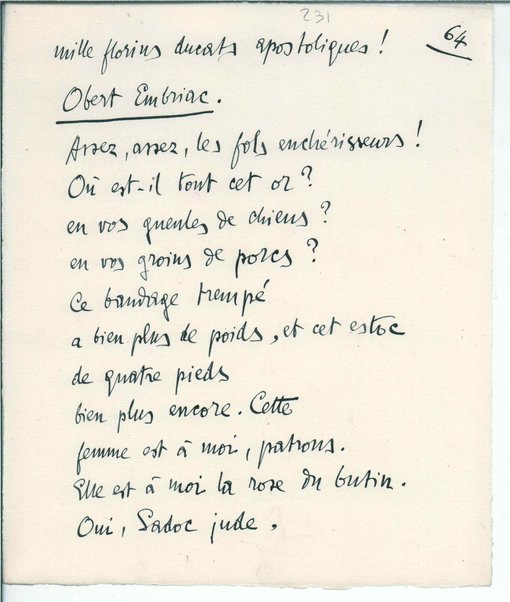 231
64
mille florins ducats apostoliques !
Obert Embriac.
Assez, assez, les fols enchérisseurs !
Où est-il tout cet or ?
en vos gueules de chiens ?
en vos groins de porcs ?
Ce bandage trempé
a bien plus de poids, et cet estoc
de quatre pieds
bien plus encore. Cette
femme est à moi, patrons.
Elle est à moi la rose du butin.
Oui, Sadoc jude.